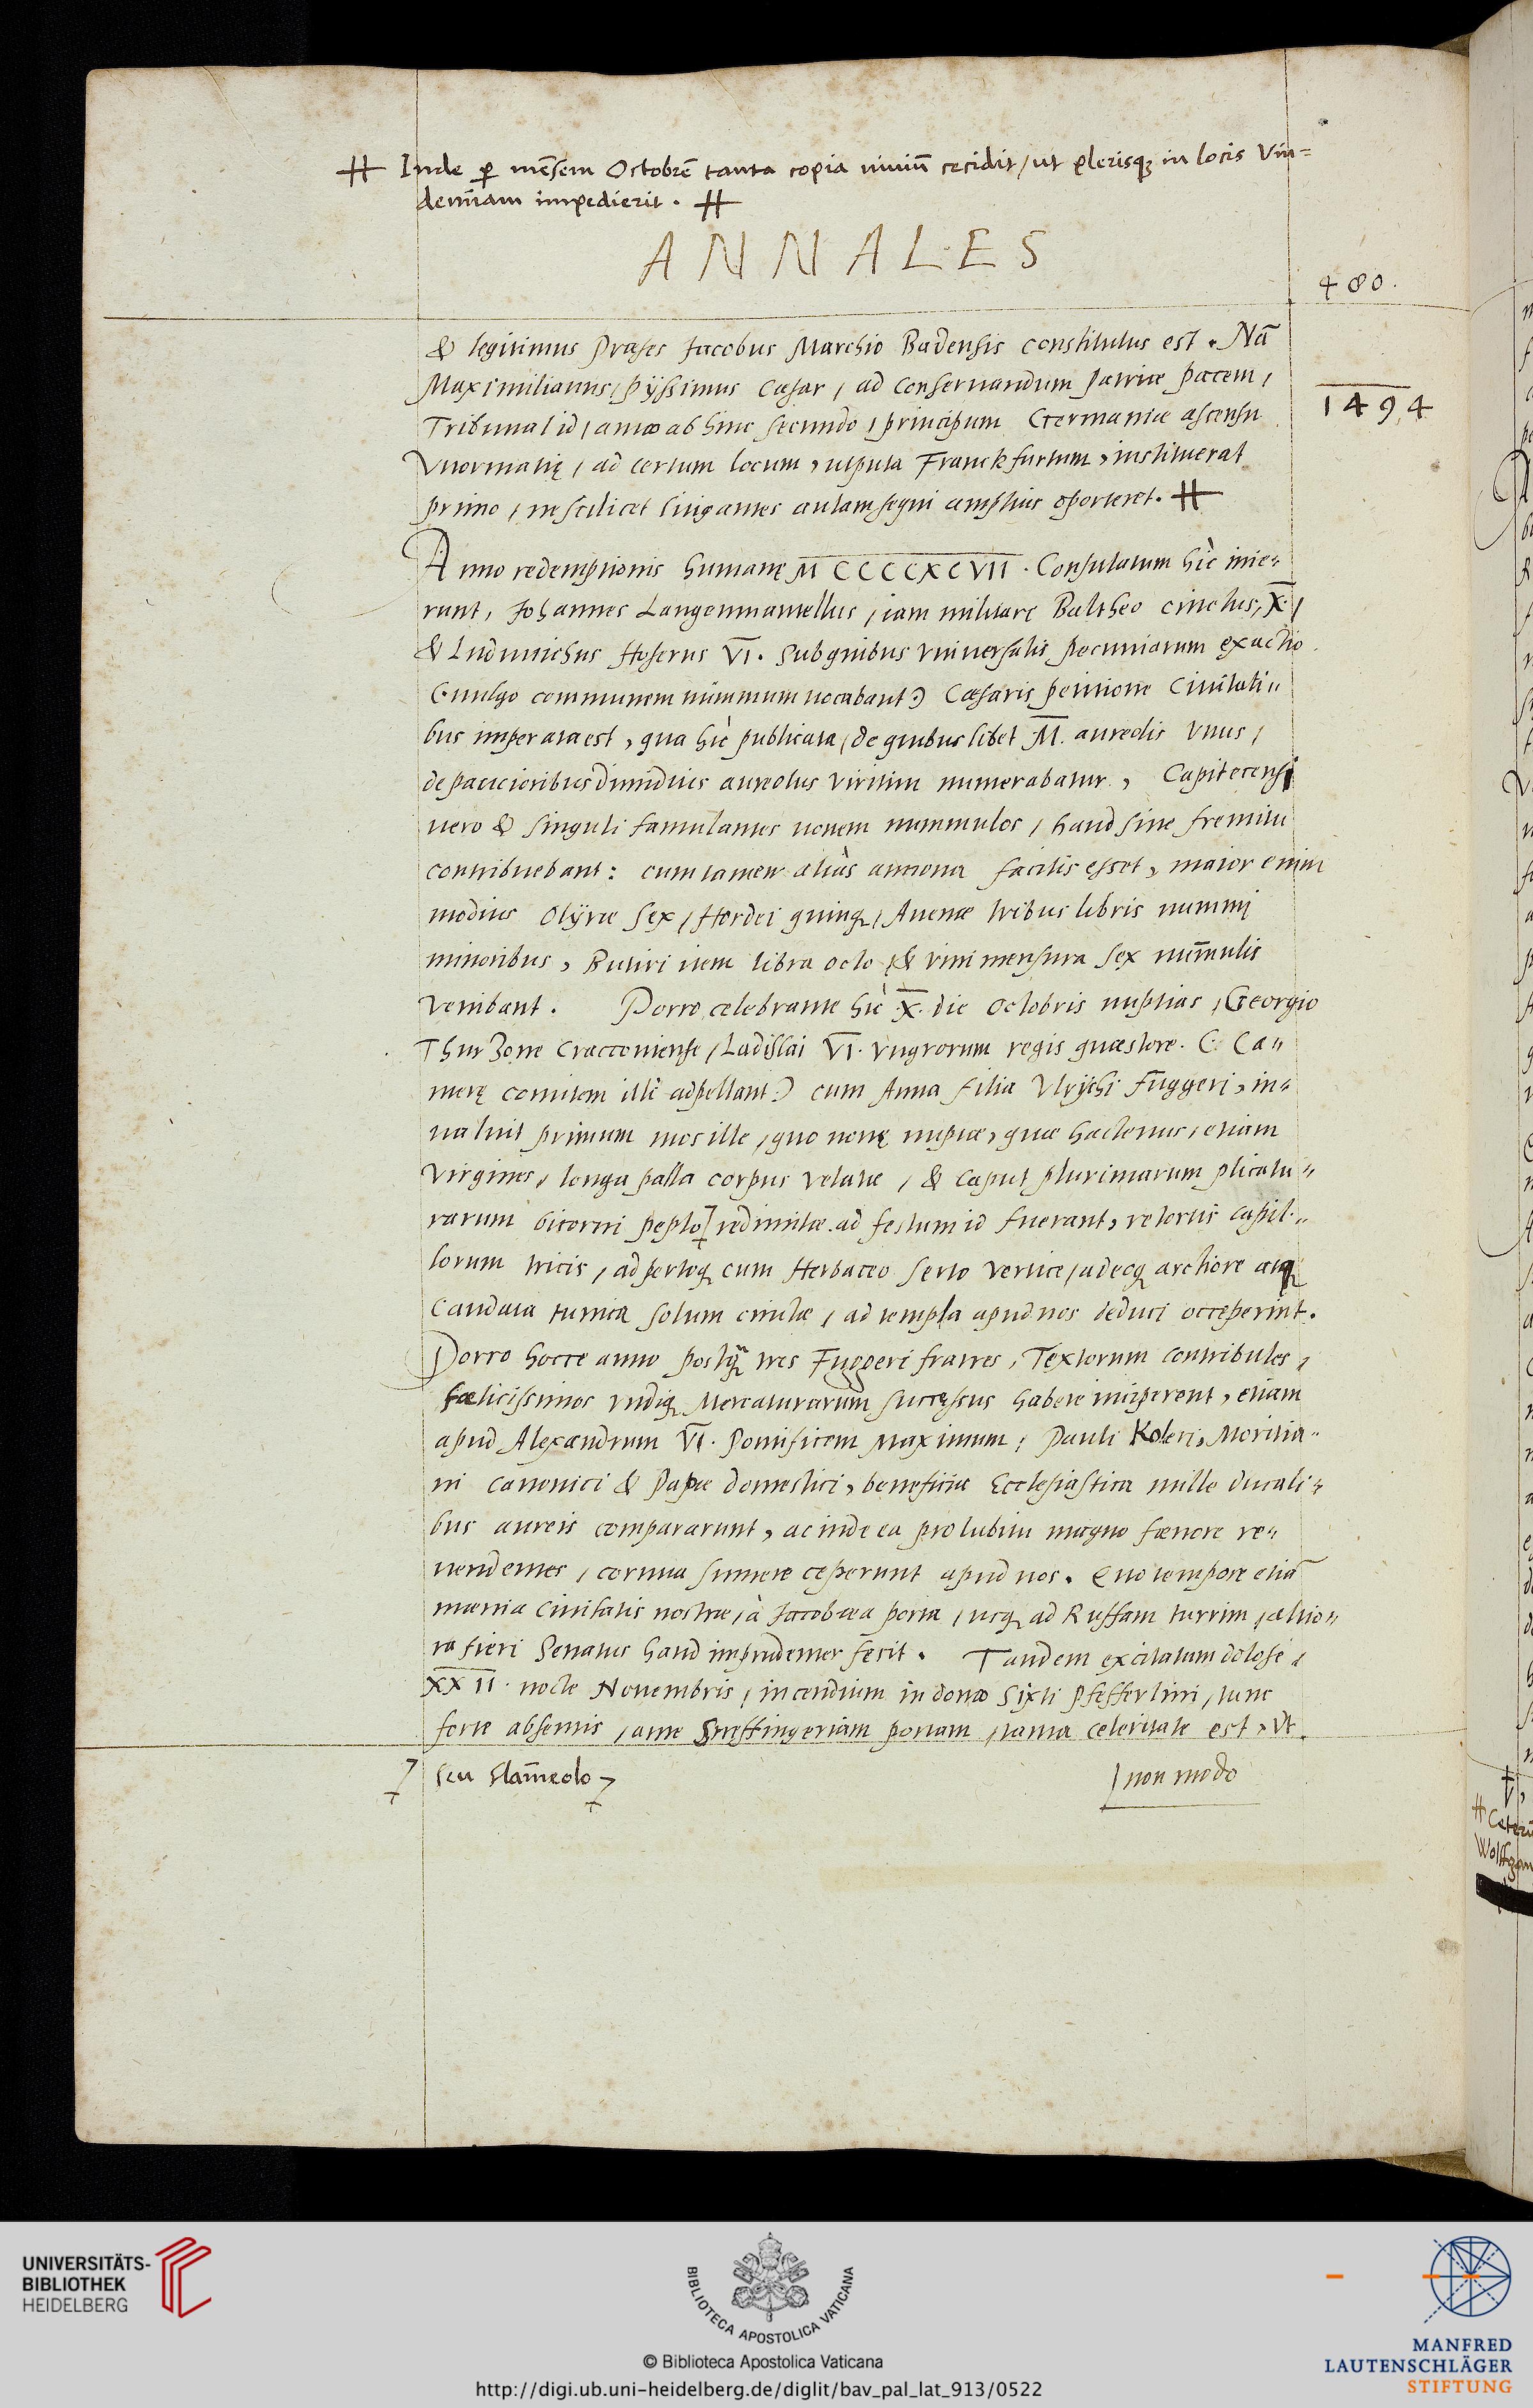 ⧺ Inde ꝑ mẽsem Octobrẽ tanta copia niuiũ cecidit / ut plerisqꝫ in locis Vin=
demiam impedierit . ⧺
ANNALES
480.
& legitimus Præses Jacobus Marchio Badensis constitutus est . Nã
Maximilianus, pijssimus Cæsar, ad conseruandum patriæ pacem,
1494
Tribunal id, anno ab hinc secundo, principum Germaniæ assensu
Vuormatię, ad certum locum, utputa Franckfurtum, instituerat
primo, ne scilicet litigantes aulam sequi amplius oporteret. ⧺
Anno redemptionis humanę M CCCCXCVII . Consulatum hìc inie-
runt, Johannes Langenmantellus, iam militari Baltheo cinctus, X.
& Ludouichus Hoserus VI. Sub quibus vniuersalis pecuniarum exactio
(: uulgo communem nummum uocabant :) Cæsaris petitione Ciuitati-
bus imperata est, qua hìc publicata, de quibuslibet M. aureolis Vnus,
de paucioribus dimidius aureolus viritim numerabatur, Capitecensi
uero & singuli famulantes nouem nummulos, haud sine fremitu
contribuebant: cum tamen aliàs annona facilis esset, maior enim
modius Olÿræ sex, Hordei quinqꝫ, Auenæ tribus libris nummi
minoribus, Butiri item libra octo, & vini mensura sex num̃ulis
venibant . Porro, celebrante hìc X. die Octobris nuptias, Georgio
Thurzone Cracouiense, Ladislai VI. Vngrorum regis quæstore. (: Ca-
merę comitem illi adpellant :) cum Anna filia Vlrichi Fuggeri, in-
ualuit primum mos ille, quo nouę nuptæ, quæ hactenus, etiam
virgines, longa palla corpus velatæ, & caput plurimarum plicatu-
rarum bicorni peplo redimitæ ad festum id fuerant, retortis capil-
lorum tricis, adpertoqꝫ cum Herbaceo serto vertice, adeoqꝫ arctiore atqꝫ
caudata tunica solum cinctæ, ad templa apud nos deduci occeperint.
Porro hocce anno postqꝫ̃ tres Fuggeri fratres, Textorum contribules,
fælicissimos vndiqꝫ Mercaturarum successus habere inciperent, etiam
apud Alexandrum VI. Pontificem Maximum, Pauli Koleri, Moritia-
ni canonici & Papæ domestici, beneficia Ecclesiastica mille ducati-
bus aureis compararunt, ac inde ea pro lubitu magno fænore re-
uendentes, cornua sumere ceperunt apud nos. Quo tempore etiã
mænia Ciuitatis nostræ, à Jacobæa porta, usqꝫ ad Ruffam turrim, altio-
ra fieri Senatus haud imprudenter fecit . Tandem excitatum dolose,
XXII. nocte Nouembris, incendium in domo Sixti Pfefferlini, tunc
forte absentis, ante Streffingeriam portam, tanta celeritate est, vt
seu flam̃eolo
non modo
⧺ Ceterũ
Wolffgan
UNIVERSITÄTS-
BIBLIOTHEK
HEIDELBERG
BIBLIOTECA APOSTOLICA VATICANA
© Biblioteca Apostolica Vaticana
http://digi.ub.uni-heidelberg.de/diglit/bav_pal_lat_913/0522
MANFRED
LAUTENSCHLÄGER
STIFTUNG